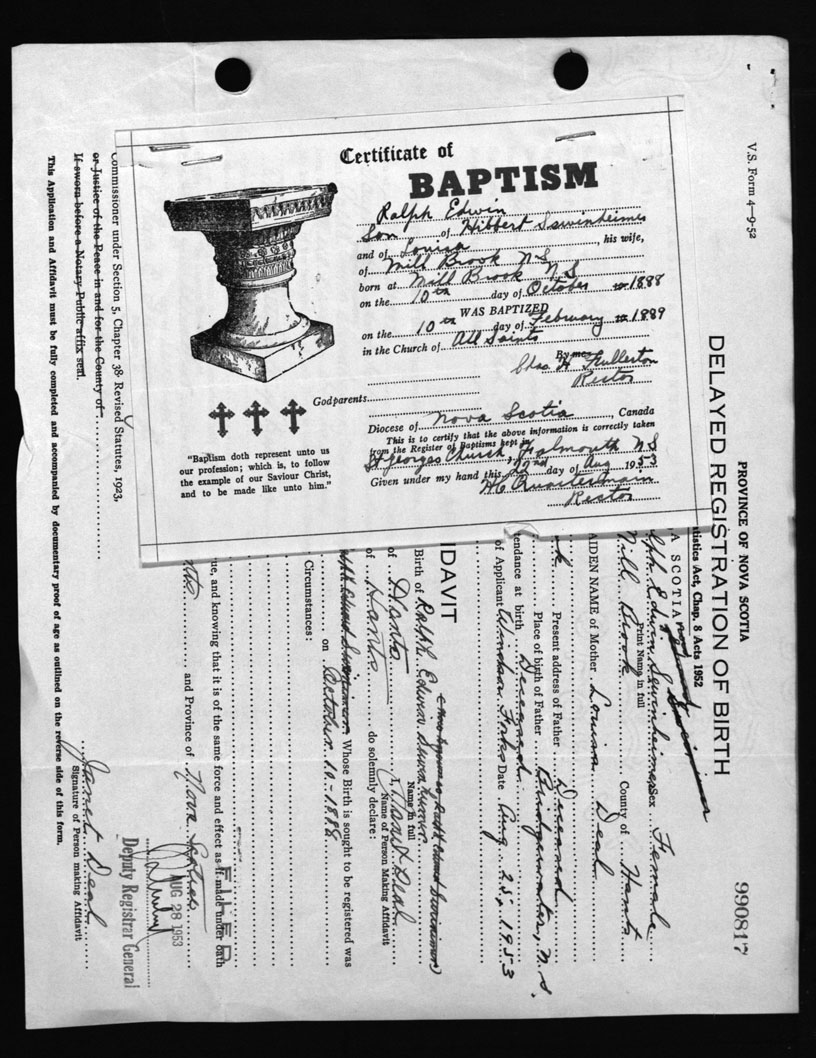 Certificate of
BAPTISM
Ralph Edwin
Son of Hibbert Swinheimer
and of Louisa, his wife,
of Mill Brook N-S
born at Mill Brook N S
on the 10th day of October 1888
WAS BAPTIZED
on the 10th day of February 1889
in the Church of All Saints
By me
Chas H Fullerton
Rector
Godparents
Diocese of Nova Scotia, Canada
This is to certify that the above information is correctly taken
from the Register of Baptisms kept in
St Georges Church, Falmouth N S
Given under my hand this 22nd day of Aug 1953
Rector
"Baptism doth represent unto us
our profession; which is, to follow
the example of our Saviour Christ,
and to be made like unto him."
V.S. Form 4-9-52
990817
PROVINCE OF NOVA SCOTIA
DELAYED REGISTRATION OF BIRTH
tistics Act, Chap. 8 Acts 1952
A SCOTIA
lph Edwin Swinheimer Sex Female
Print Name in full
Mill Brook County of Hants
AIDEN NAME of Mother Louisa Deal
k Present address of Father Deceased
Place of birth of Father Bridgewater, N.S.
endance at birth Deceased
of Applicant Windsor Forks Date Aug 25, 1953
IDAVIT
Birth of Ralph Edwin
Name in full
of Hants I, Deal
Name of Person Making Affidavit
of Hants do solemnly declare:
Whose Birth is sought to be registered was
on October 10-1888
Circumstances:
rue, and knowing that it is of the same force and effect as if made under oath
FILED
nts and Province of Nova Scotia
AUG 28 1953
Deputy Registrar General
Commissioner under Section 5, Chapter 38 Revised Statutes, 1923,
or Justice of the Peace in and for the County of
If sworn before a Notary Public affix seal.
Deal
Signature of Person making Affidavit
This Application and Affidavit must be fully completed and accompanied by documentary proof of age as outlined on the reverse side of this form.